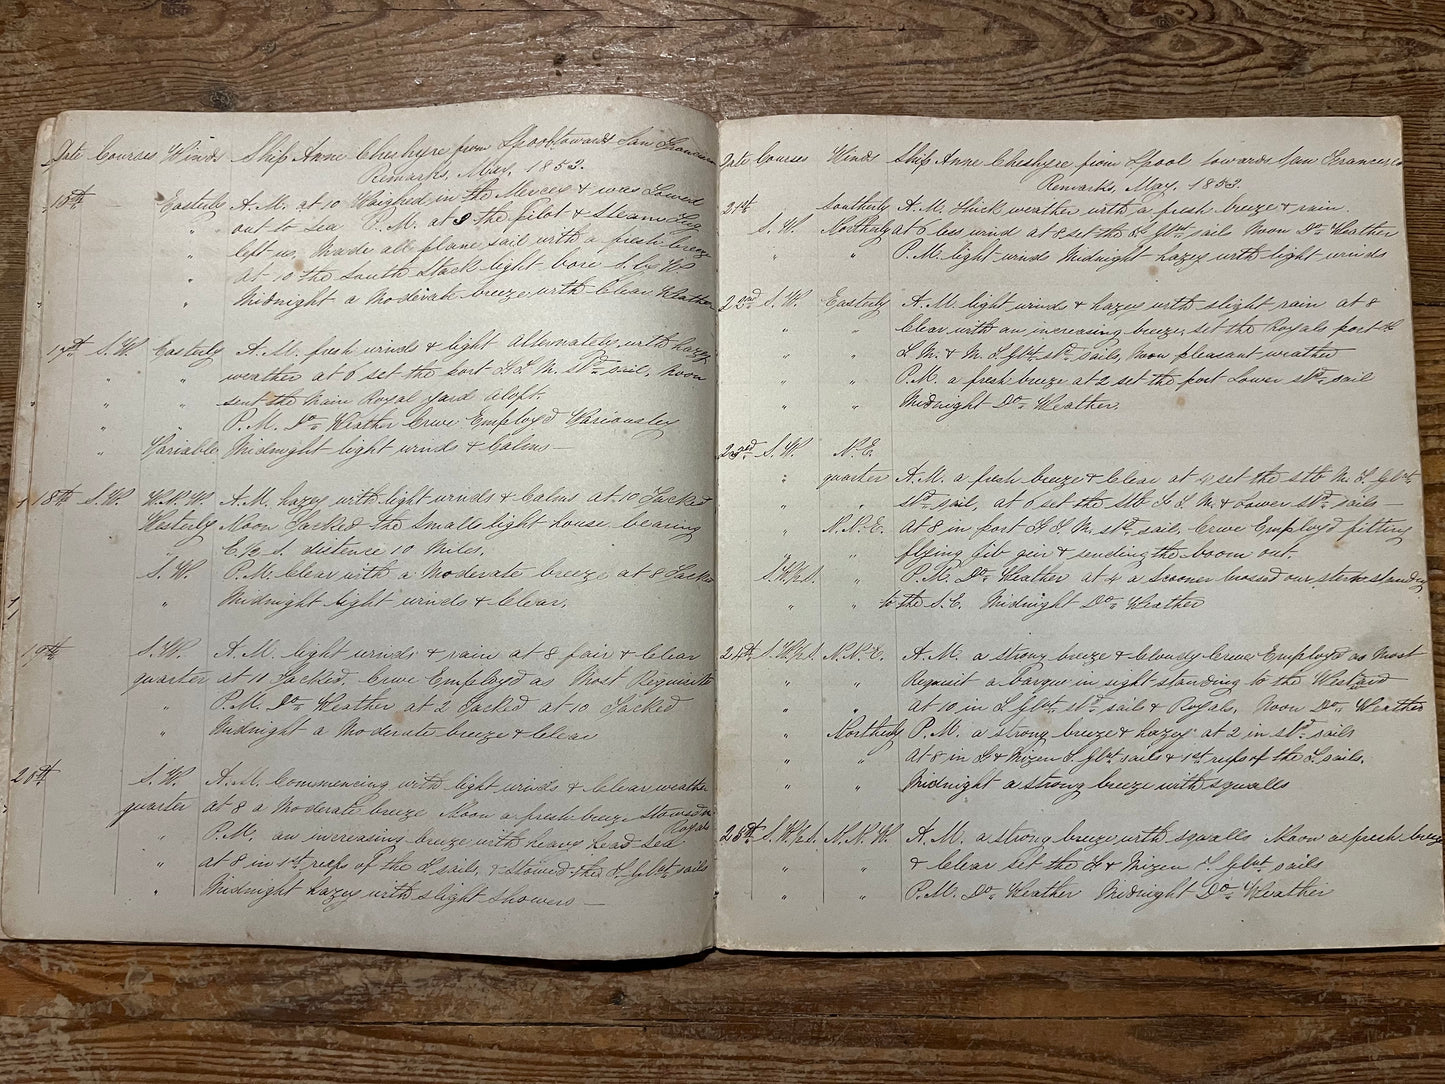 Date Courses Winds Ship Anne Cheshyre from Lpool towards San Francisco
Remarks, May, 1853.
16th Easterly A.M. at 10 Weighed in the Mercey & was Towed
" out to Sea P.M. at 9 the Pilot & Steam Tug
" left us, Made all plane sail with a fresh breeze
" at 10 the South Stack light bore S. by W
" Midnight a Moderate breeze with Clear Weather
17th S.W. Easterly A.M. fresh winds & light alternately with hazy
" " weather at 6 set the port F.T.M. Std sail, Noon
" " sent the Main Royal yard aloft.
" " P.M. Do Weather Crwe Employd Variousley
" Variable Midnight light winds & Calms —
18th S.W. W.N.W. A.M. hazy with light winds & Calms at 10 Tacked
Westerly Noon Tacked the Smalls light house bearing
" E½S. distence 10 Miles.
S.W. P.M. Clear with a Moderate breeze at 8 Tacked
" Midnight light winds & Clear.
19th S.W. A.M. light winds & rain at 8 fair & Clear
quarter at 11 Tacked, Crwe Employd as Most Requisite
" P.M. Do Weather at 2 Tacked at 10 Tacked
" Midnight a Moderate breeze & Clear
20th S.W. A.M. Commencing with light winds & Clear weather
quarter at 8 a Moderate breeze Noon a fresh breeze Stowed
Royals
" P.M. an increasing breeze with heavy head Sea
" at 8 in 1st reefs of the T. sails, & Stowed the T.Glnt sails
" Midnight hazey with slight Showers —
Date Courses Winds Ship Anne Cheshyre from Lpool towards San Francisco
Remarks, May, 1853.
21st Southerly A.M. Thick weather with a fresh breeze & rain
S.W. Northerly at 6 less wind at 8 set the T.Glnt sails Noon Do Weather
" " P.M. light winds Midnight hazey with light winds
22nd S.W. Easterly A.M. light winds & hazey with slight rain at 8
" " Clear with an increasing breeze, set the Royals port
" " T.M. & M.T.Glnt std sails, Noon pleasant weather
" " P.M. a fresh breeze at 2 set the port Lower std sail
" " Midnight Do Weather.
23rd S.W. N.E.
" quarter A.M. a fresh breeze & Clear at 4 set the stb M.T.Glnt
" " std sail, at 6 set the Stb F.T.M. & Lower std sails —
" N.N.E. at 8 in port F.T.M. std sail, Crwe Employd fitting
" " flying jib gear & sending the boom out.
S.W½S. " P.M. Do Weather at 4 a Scooner Crossed our stern standing
" " to the S.E. Midnight Do Weather
24th S.W½S. N.N.E. A.M. a strong breeze & Cloudy Crwe Employd as Most
" " Requisit a barque in sight standing to the Westard
" " at 10 in T.Glnt std sails & Royals, Noon Do Weather
" Northerly P.M. a strong breeze & hazey at 2 in std sails
" " at 8 in F. & Mizen T.Glnt sails & 1st reefs of the T. sails,
" " Midnight a strong breeze with squalls
25th S.W½S. N.N.W. A.M. a strong breeze with squalls Noon a fresh breeze
" " & Clear set the F. & Mizen T.Glnt sails
" " P.M. Do Weather Midnight Do Weather